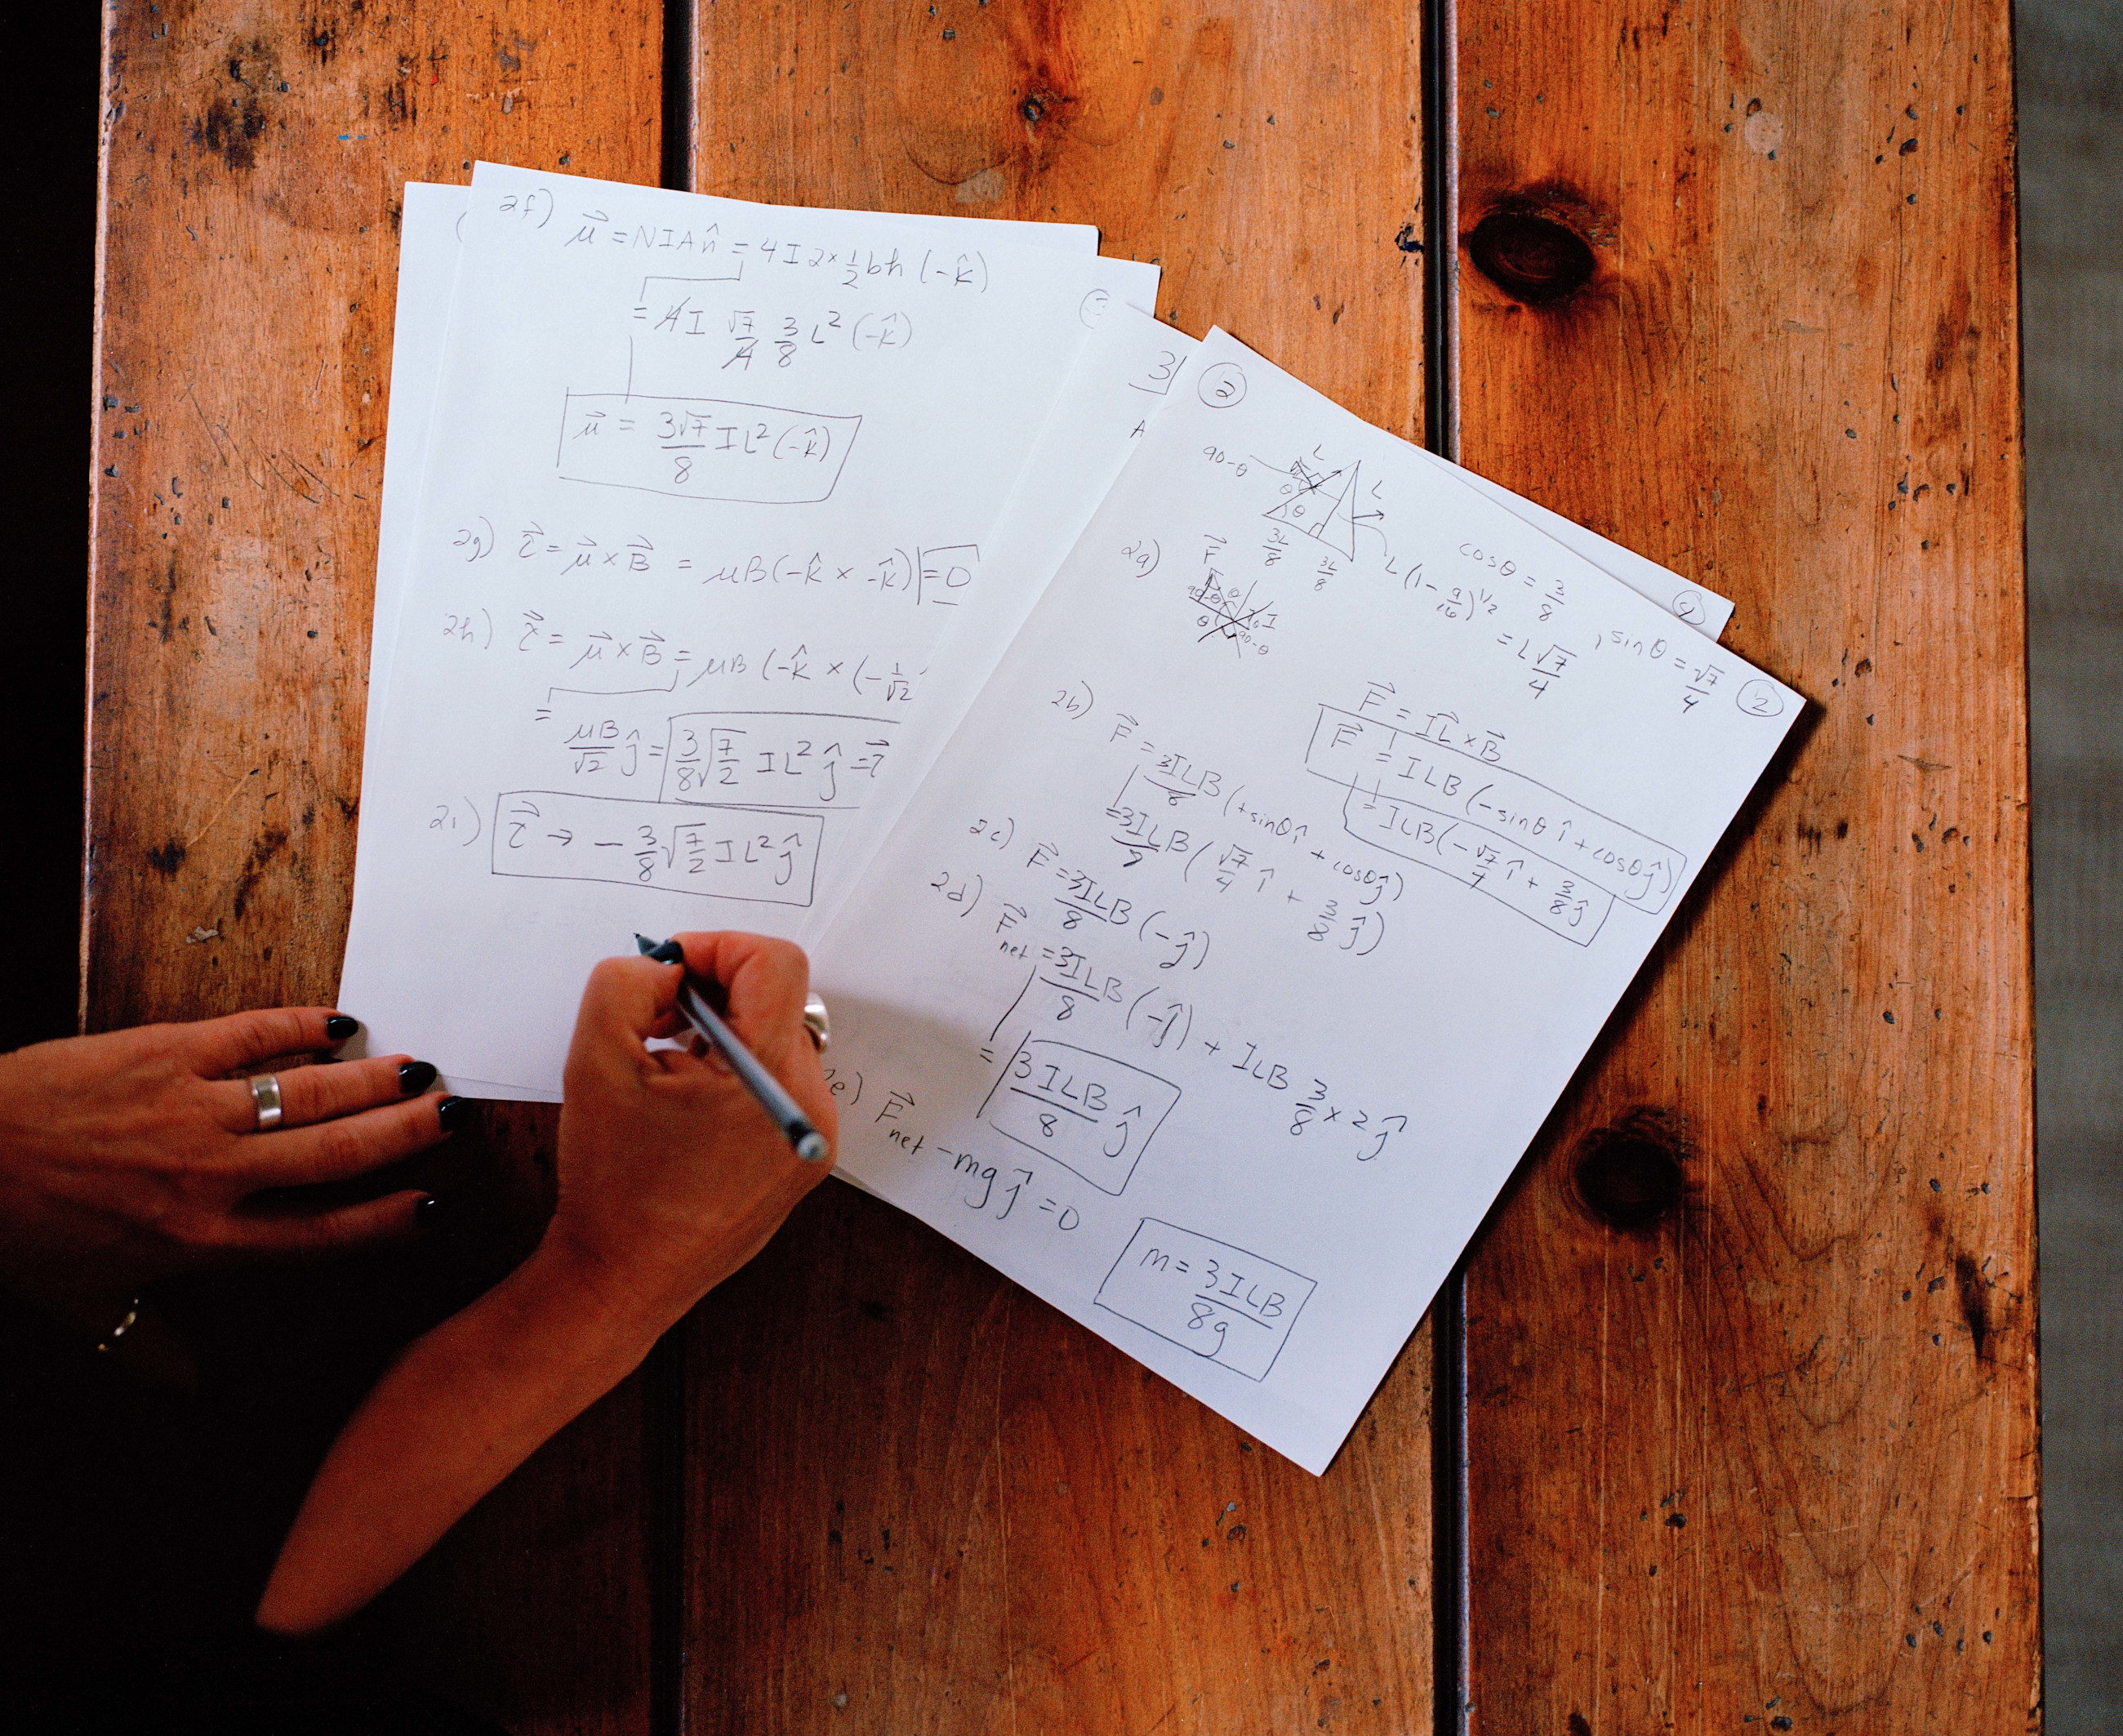 2f) μ⃗ = NIAn̂ = 4I2×½bh (-k̂)
= 4I √7/4 3/8 L² (-k̂)
μ⃗ = 3√7/8 IL² (-k̂)
2g) τ⃗ = μ⃗ × B⃗ = μB(-k̂ × -k̂) = 0
2h) τ⃗ = μ⃗ × B⃗ = μB (-k̂ × (-1/√2
= μB/√2 ĵ = 3/8 √7/2 IL² ĵ = τ⃗
2i) τ⃗ → - 3/8 √7/2 IL² ĵ
3
A
2
90-θ
L
L
θ
θ
3L/8
3L/8
L(1 - 9/16)^1/2
= L√7/4
cosθ = 3/8, sinθ = √7/4
4
2
2a) F⃗
90-θ
θ
θ
I
90-θ
F⃗ = IL⃗ × B⃗
F⃗ = ILB (-sinθ î + cosθ ĵ)
= ILB(-√7/4 î + 3/8 ĵ)
2b) F⃗ = 3ILB/8 (+sinθ î + cosθ ĵ)
= 3ILB/8 (√7/4 î + 3/8 ĵ)
2c) F⃗ = 3ILB/8 (-ĵ)
2d) F⃗net = 3ILB/8 (-ĵ) + ILB 3/8 × 2 ĵ
= 3ILB/8 ĵ
2e) F⃗net - mg ĵ = 0
m = 3ILB/8g